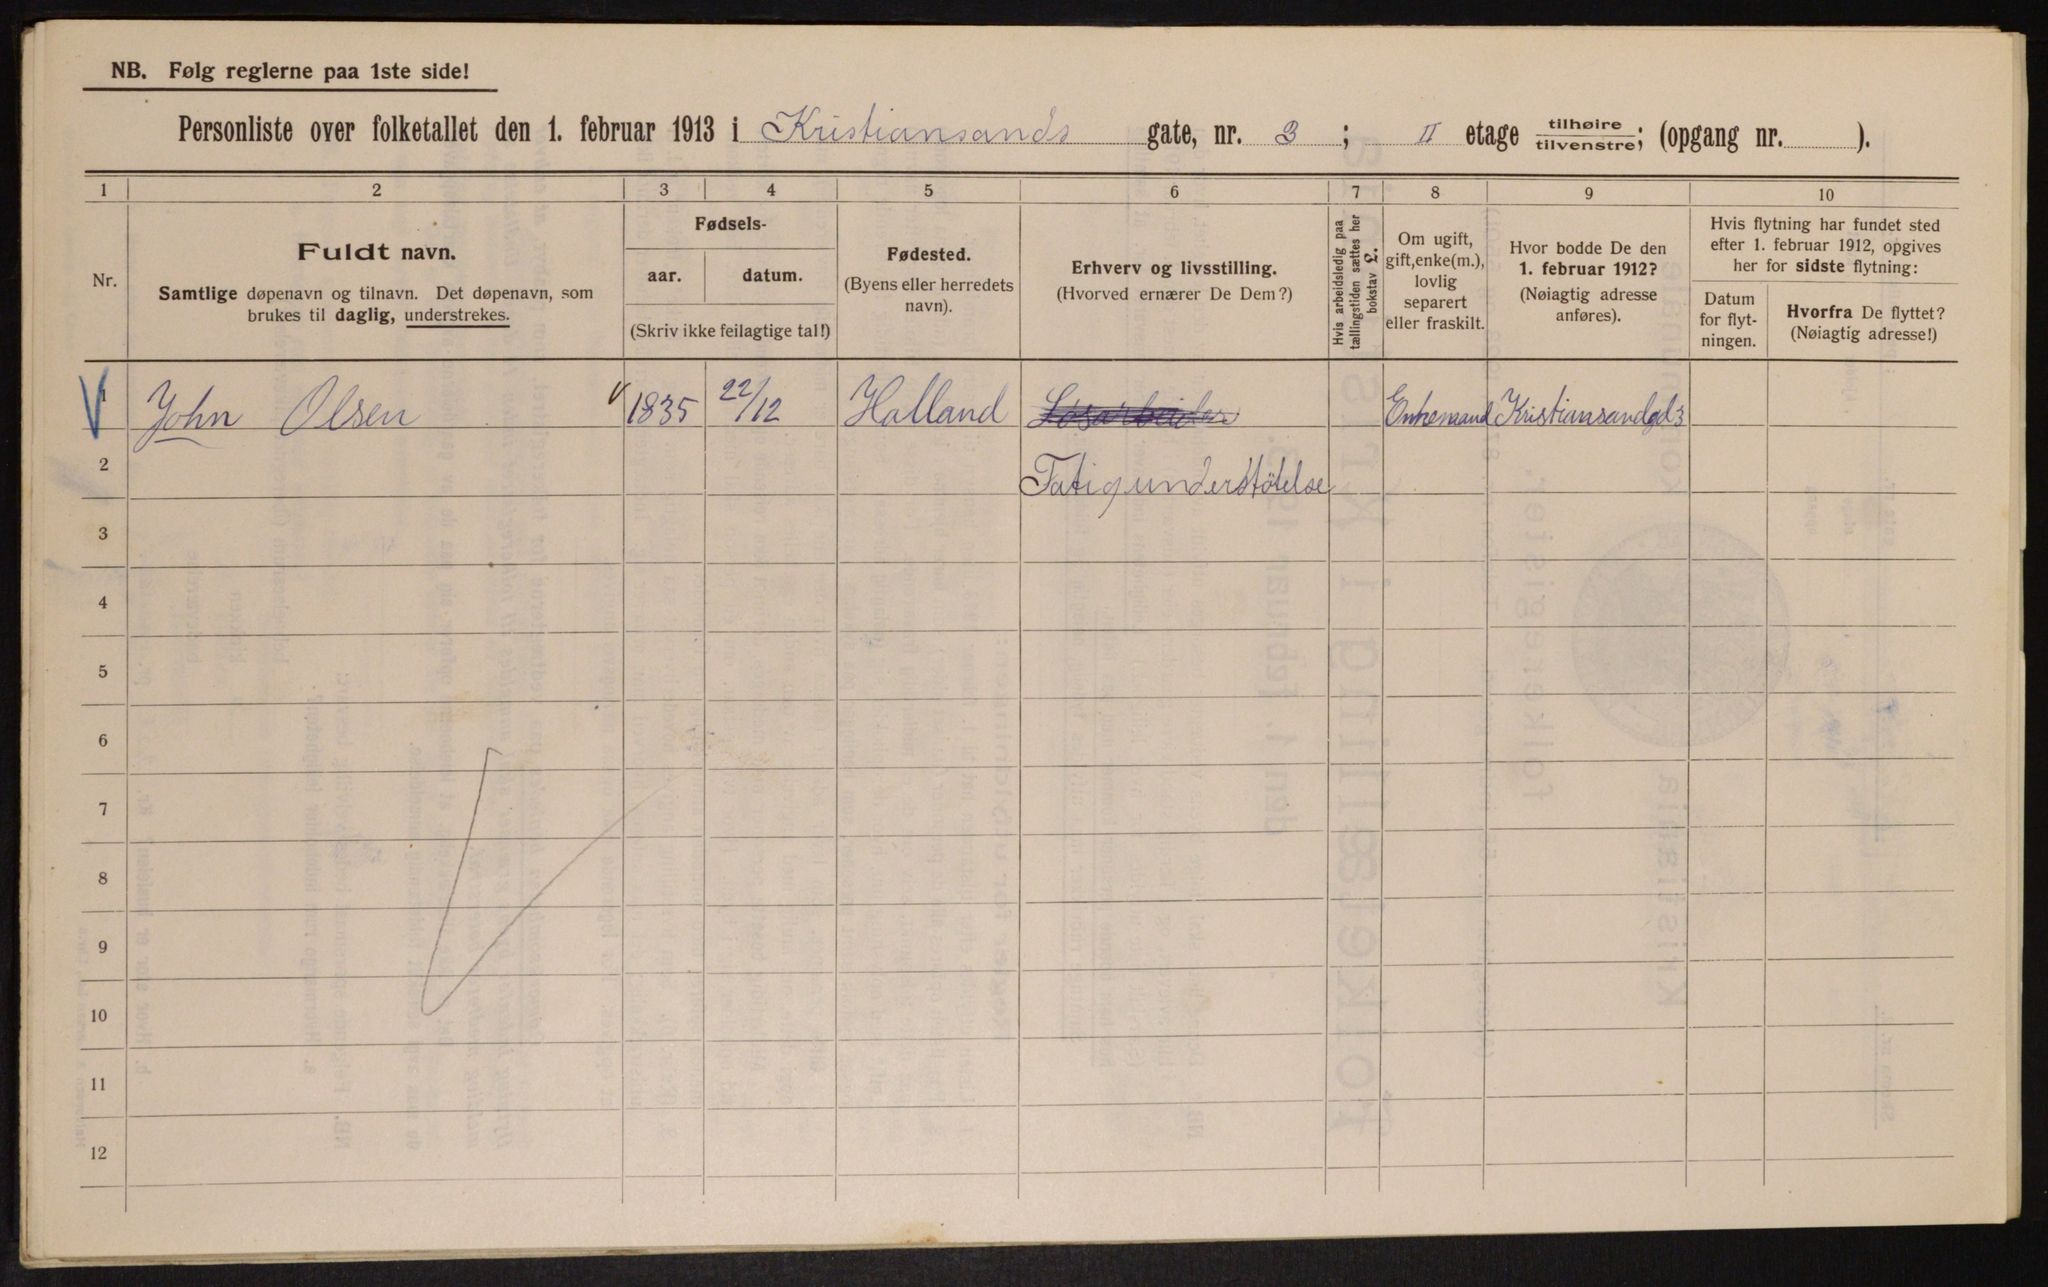 NB. Følg reglerne paa 1ste side!
Personliste over folketallet den 1. februar 1913 i Kristiansands gate, nr. 3; II etage tilhøire/tilvenstre; (opgang nr. ).
1 2 3 4 5 6 7 8 9 10
Nr.
Fuldt navn.
Samtlige døpenavn og tilnavn. Det døpenavn, som
brukes til daglig, understrekes.
Fødsels-
aar. datum.
(Skriv ikke feilagtige tal!)
Fødested.
(Byens eller herredets
navn).
Erhverv og livsstilling.
(Hvorved ernærer De Dem?)
Hvis arbeidsledig paa
tællingstiden sættes her
bokstav L.
Om ugift,
gift, enke(m.),
lovlig
separert
eller fraskilt.
Hvor bodde De den
1. februar 1912?
(Nøiagtig adresse
anføres).
Hvis flytning har fundet sted
efter 1. februar 1912, opgives
her for sidste flytning:
Datum
for flyt-
ningen.
Hvorfra De flyttet?
(Nøiagtig adresse!)
1 John Olsen 1835 22/12 Halland Løsarbeider Enkemand Kristiansandgd 3
2 Fatigunderstøtelse
3
4
5
6
7
8
9
10
11
12